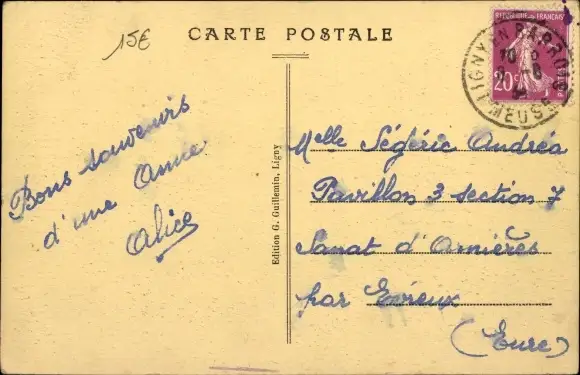 15€
CARTE POSTALE
REPUBLIQUE FRANÇAISE
20c
POSTES
LIGNY EN BARROIS
MEUSE
Bons souvenirs
d'une Amie
Alice
Edition G. Guillemin, Ligny
Melle Ségéric Andréa
Pavillon 3 section 7
Sanat d'Arnières
par Evreux
(Eure)